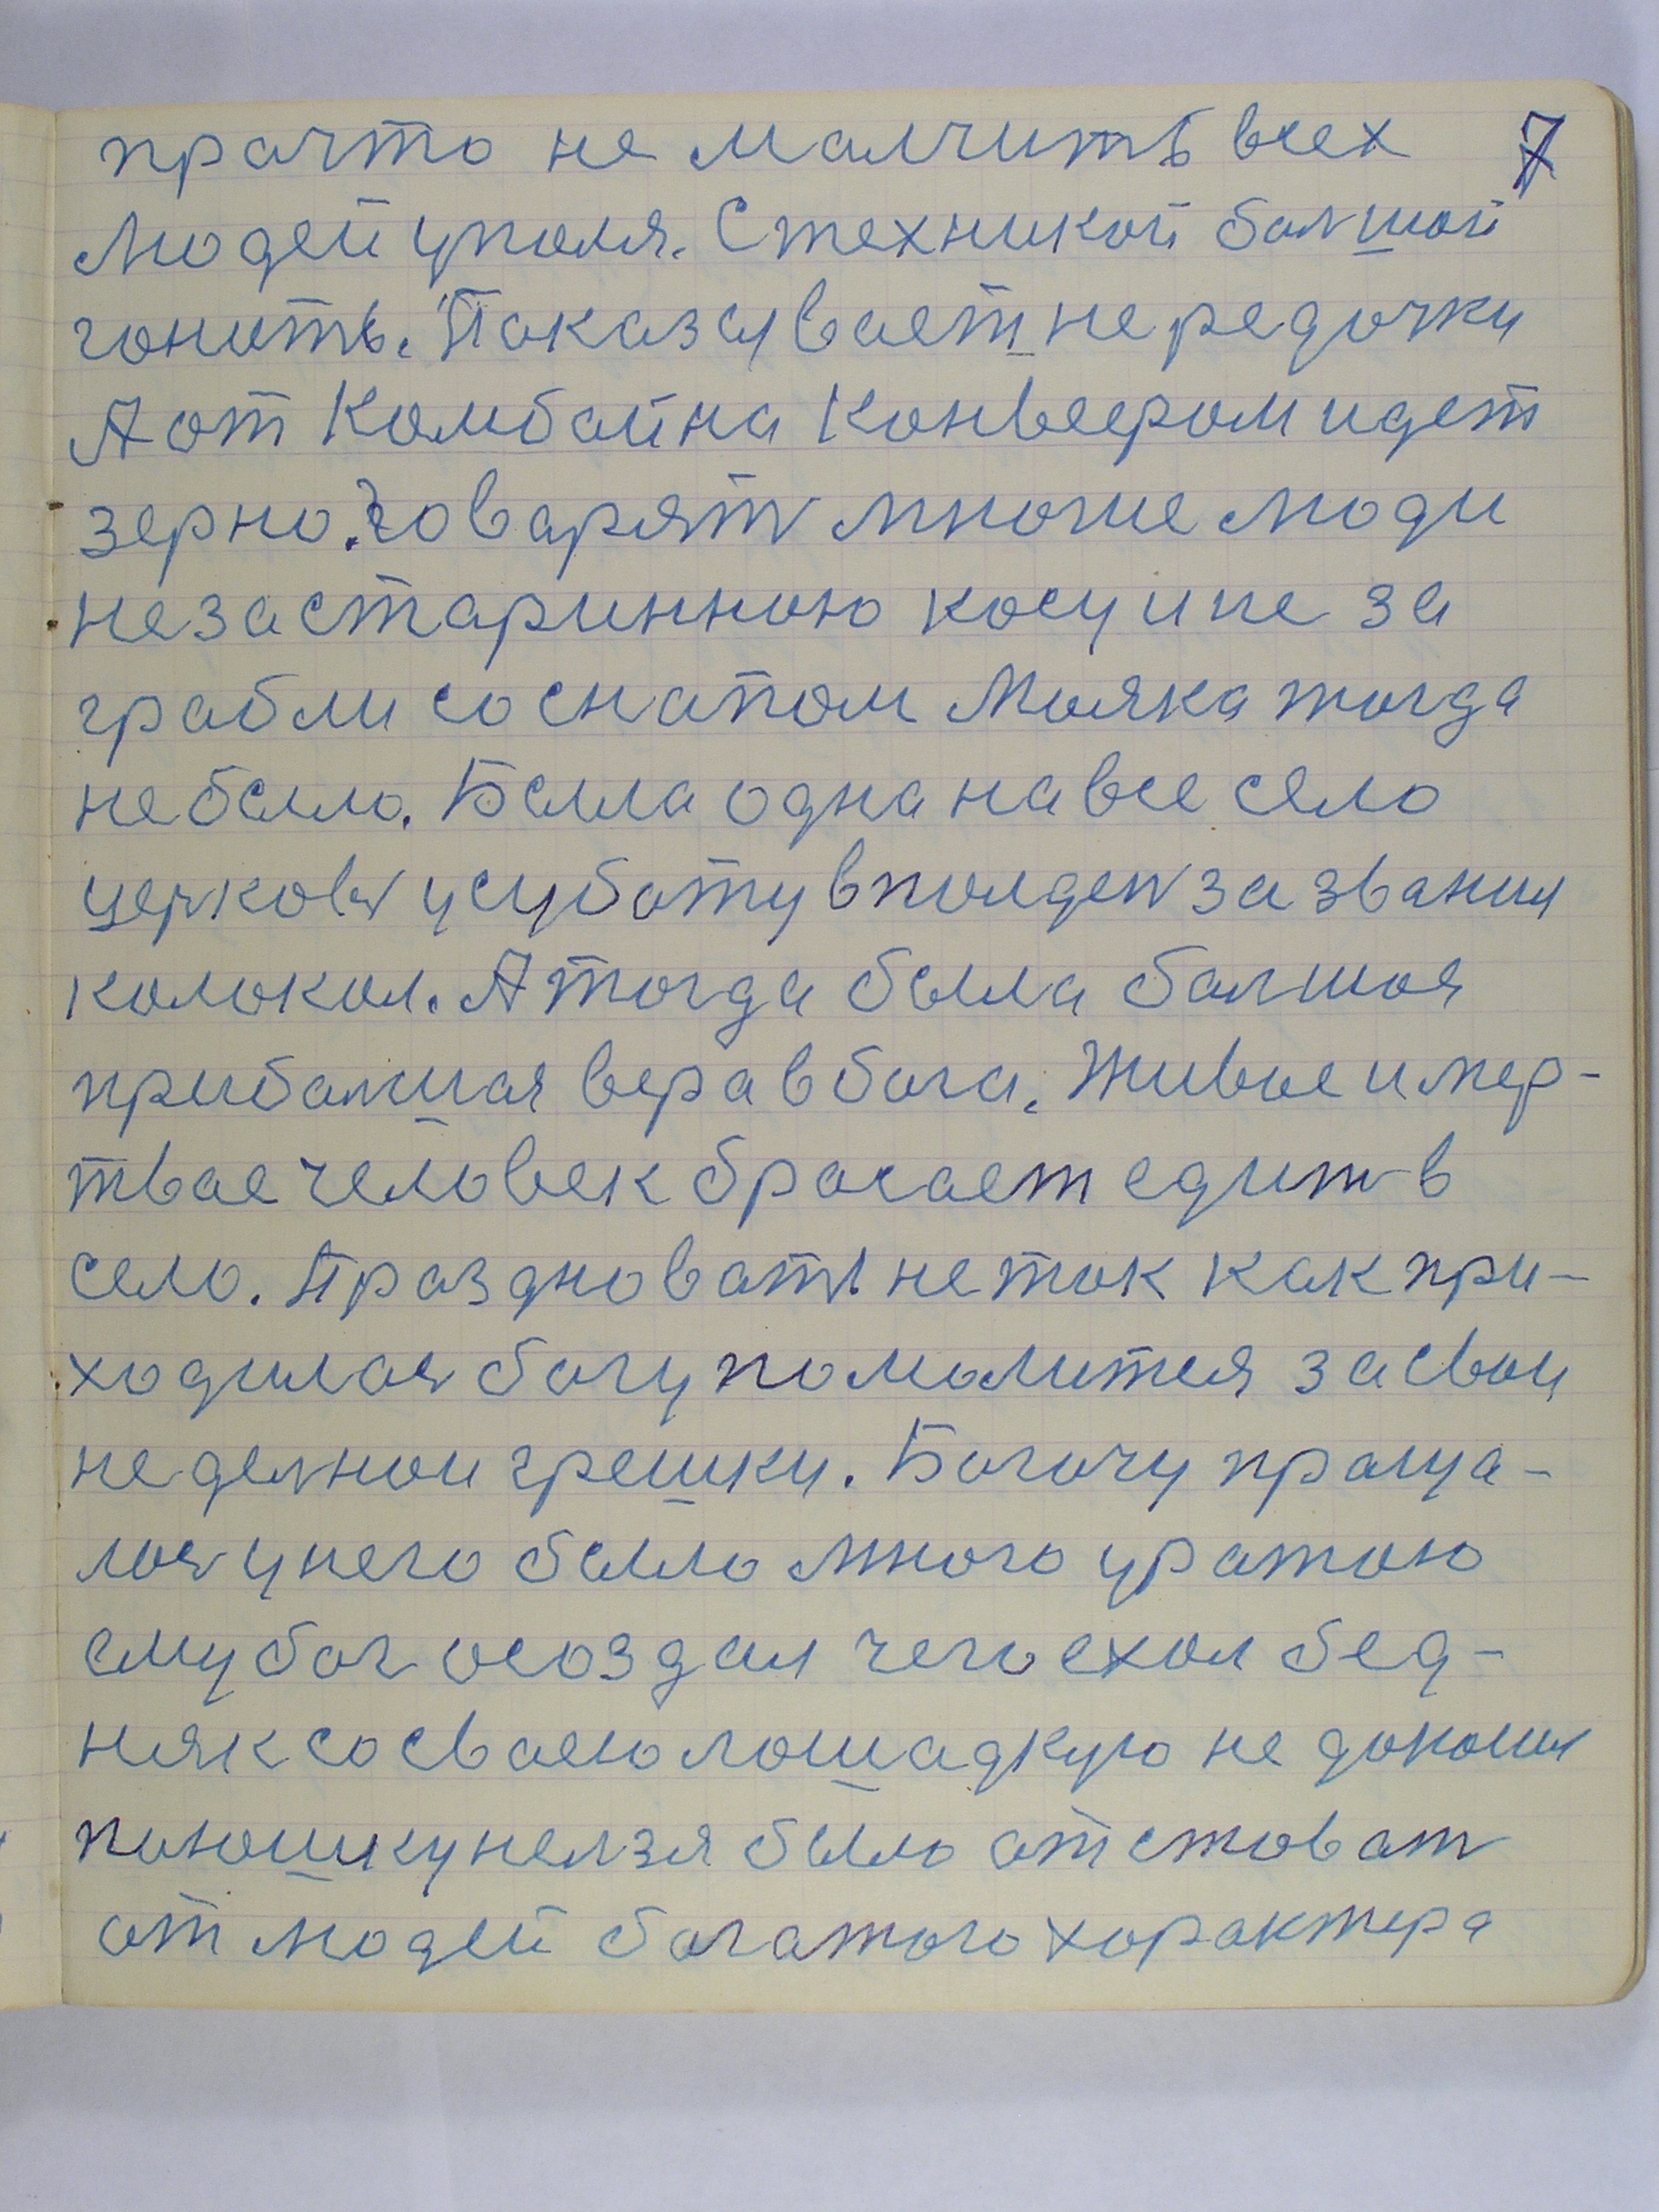 прачто не малчить всех 7
людей уполя. С техникой балшой
гонить. Показувает не редочки
А от Комбайна Конвеером идет
зерно. говарять многие люди
незастаринною косу и не за
грабли со снапом Маяка тогда
не было. Была одна на все село
церковь у суботу в полден зазвания
колокол. А тогда была балшая
прибалшая вера в бога. Живое и мер-
твае человек брасает едить в
село. Праздновать не так как при-
ходилась богу помолится за свои
неделнои грешки. Богачу праща-
лось у него было много уратою
ему бог осоздал чего ехал бед-
няк со сваею лошадкую не
поюшку нелзя было атставать
от людей богатого характера